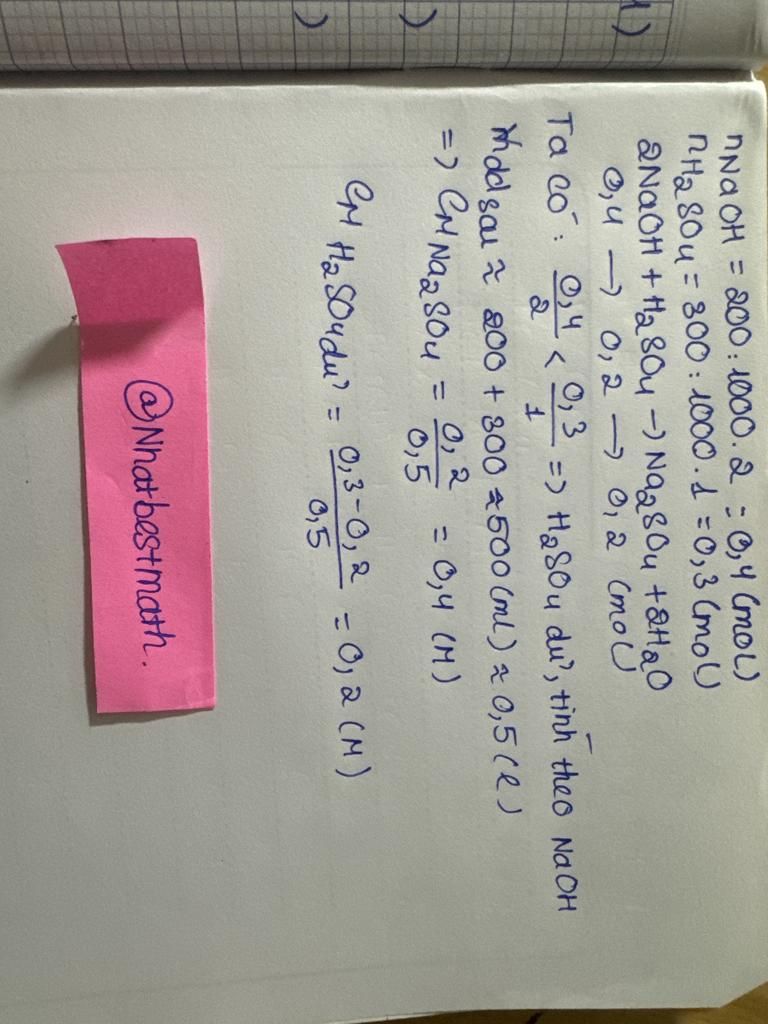 nNaOH = 200 : 1000 . 2 = 0,4 (mol)
nH2SO4 = 300 : 1000 . 1 = 0,3 (mol)
2NaOH + H2SO4 → Na2SO4 + 2H2O
0,4 → 0,2 → 0,2 (mol)
Ta có : 0,4/2 < 0,3/1 => H2SO4 dư, tính theo NaOH
Mdd sau ≈ 200 + 300 ≈ 500 (ml) ≈ 0,5 (l)
=> CM Na2SO4 = 0,2/0,5 = 0,4 (M)
CM H2SO4 dư = 0,3 - 0,2/0,5 = 0,2 (M)
@Nhatbestmath.